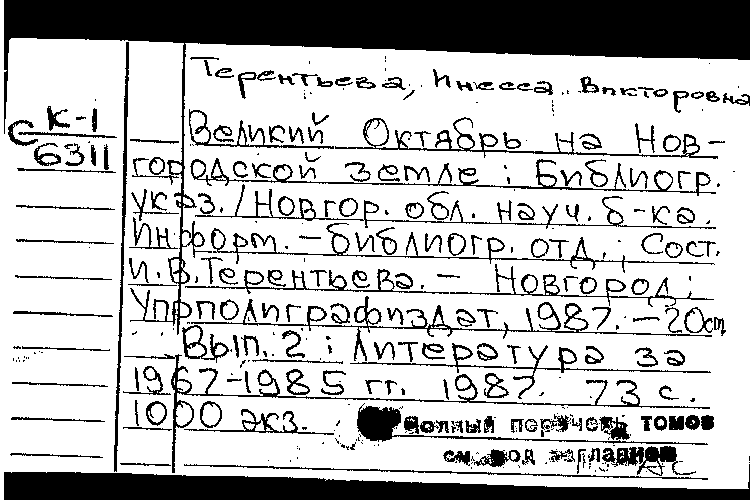 Терентьева, Инесса Викторовна
К-1
С
6311
Великий Октябрь на Нов-
городской земле : Библиогр.
указ. / Новгор. обл. науч. б-ка.
Информ.-библиогр. отд. ; Сост.
И.В.Терентьева. – Новгород :
Упрполиграфиздат, 1987. – 20см
Вып. 2 : Литература за
1967-1985 гг. 1987. 73 с.
1000 экз.
Полный перечень томов
см. под заглавием